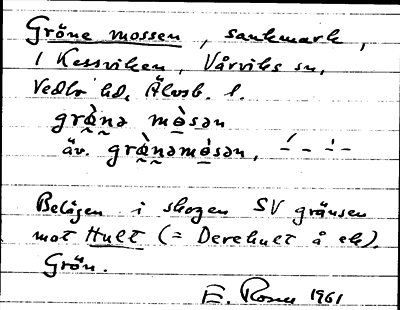 Gröne mossen, sankmark,
i Kessviken, Vårviks sn,
Vedbo hd, Älvsb. l.
grø̀nə mò̤sən
äv. grø̀nəmò̤sən,
Belägen i skogen SV gränsen
mot Hult (= Derehult å ek).
Grön.
E. Rosell 1961